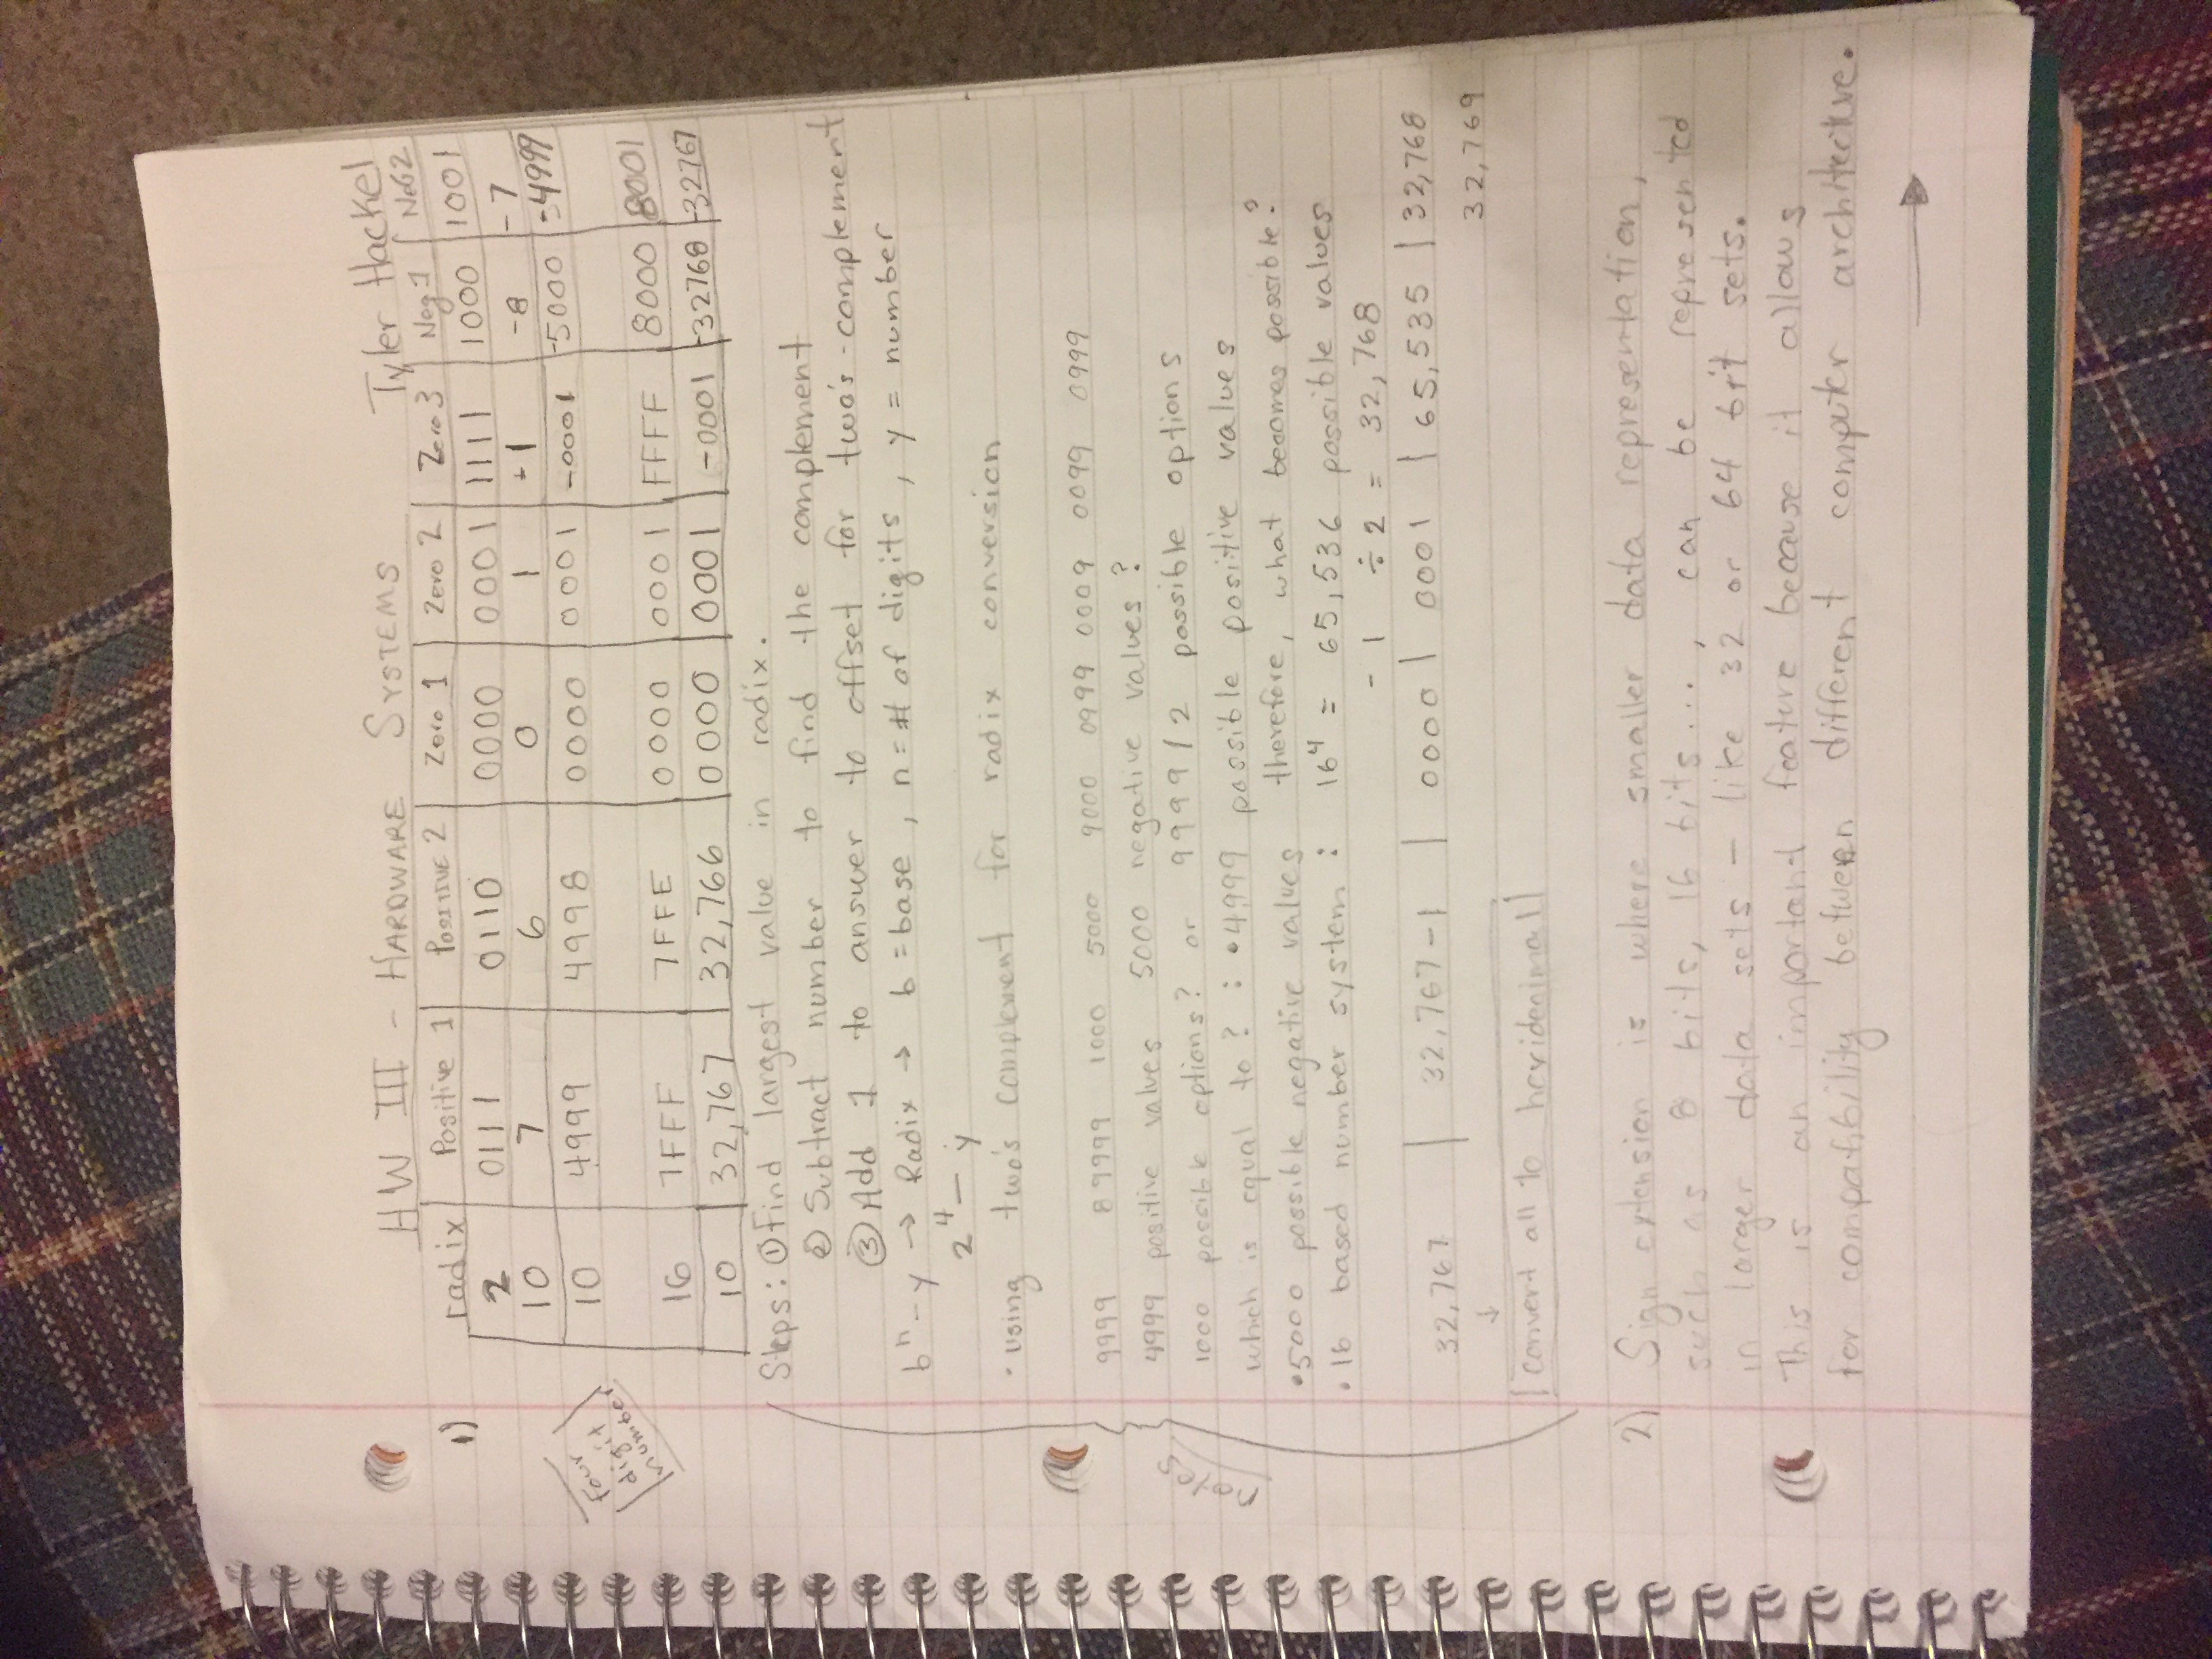 HW III - HARDWARE SYSTEMS Tyler Hackel
1) radix Positive 1 POSITIVE 2 Zero 1 Zero 2 Zero 3 Neg 1 NEG 2
2 0111 0110 0000 0001 1111 1000 1001
10 7 6 0 1 -1 -8 -7
10 4999 4998 0000 0001 -0001 -5000 -4999
four digit number
16 7FFF 7FFE 0000 0001 FFFF 8000 8001
10 32,767 32,766 0000 0001 -0001 -32768 -32767
Steps: ① Find largest value in radix.
② Subtract number to find the complement
③ Add 1 to answer to offset for two's-complement
bⁿ - y → Radix → b = base, n = # of digits, y = number
2⁴ - y
· using two's complement for radix conversion
9999 89999 1000 5000 9000 0999 0009 0099 0999
4999 positive values 5000 negative values?
1000 possible options? or 9999/2 possible options
which is equal to? : •4999 possible positive values
•5000 possible negative values therefore, what becomes possible?
notes
•16 based number system: 16⁴ = 65,536 possible values
- 1 ÷ 2 = 32,768
32,767 | 32,767-1 | 0000 | 0001 | 65,535 | 32,768
32,769
↓
convert all to hexidenimal
2) Sign extension is where smaller data representation,
such as 8 bits, 16 bits..., can be represented
in larger data sets - like 32 or 64 bit sets.
This is an important feature because it allows
for compatibility between different computer architecture.
→